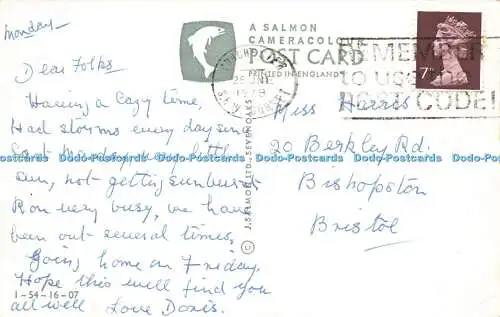 Monday
Dear Folks
Having a lazy time,
Had storms every day since
last Monday, very little
sun, not getting sunburnt
Ron very busy, we have
been out several times,
Going home on Friday.
Hope this will find you
all well Love Doris.
1-54-16-07
A SALMON
CAMERACOLOUR
POST CARD
PRINTED IN ENGLAND
© J. SALMON LTD., SEVENOAKS
1978
SOMERSET
REMEMBER
to use
POST CODE!
7P
Miss Harris
20 Berkley Rd.
Bishopston
Bristol
Dodo-Postcards Dodo-Postcards Dodo-Postcards Dodo-Postcards Dodo-Postcards Dodo-Postcards